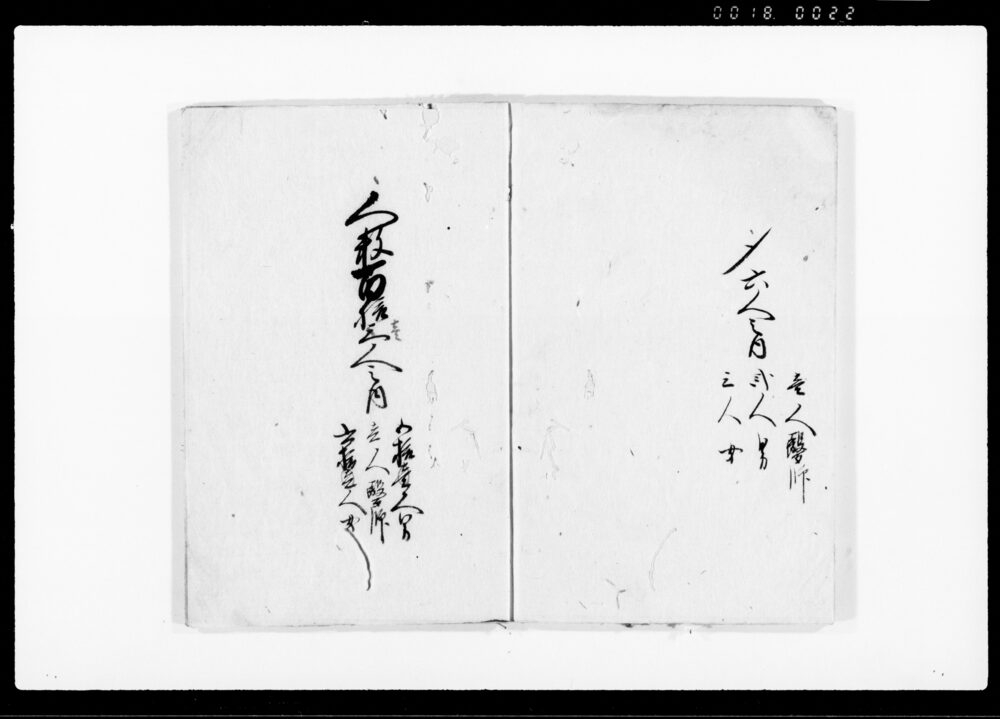 〆六人之内
壱人醫師
弐人男
三人女
人数百拾三人之内
壱
拾壱人男
壱人醫師
六拾人女